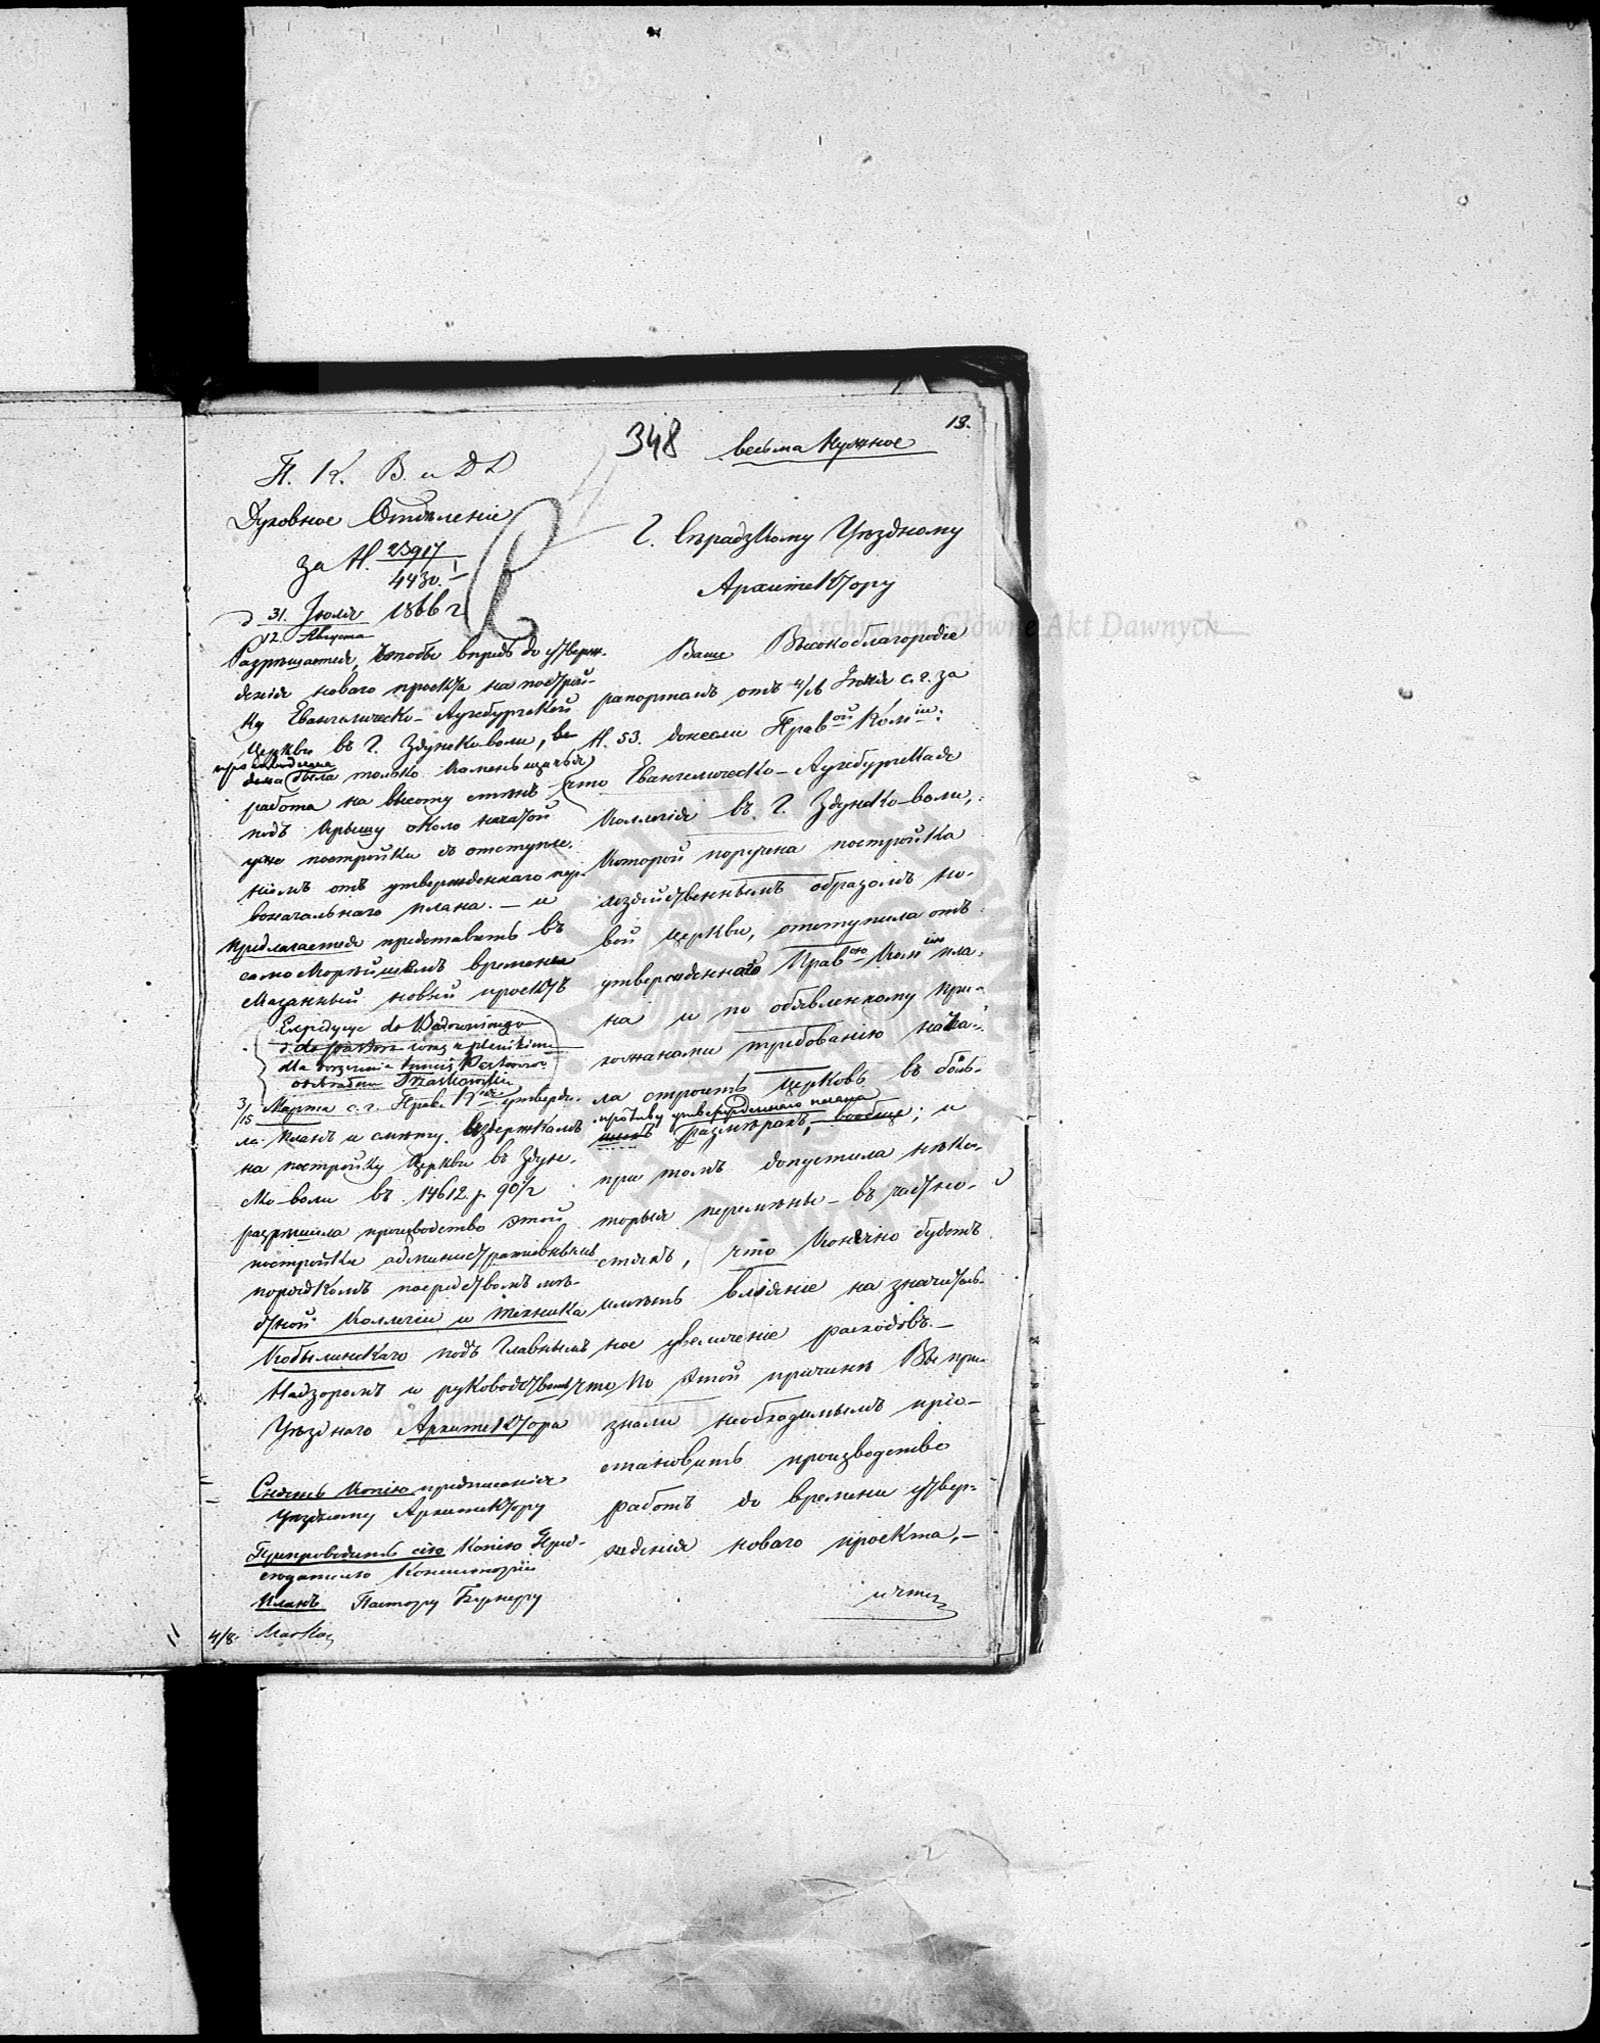 348
13.
весьма нужное
П. К. В. и Д Д
Духовное Отдѣленіе
за N. 23917
4430. I
31. Іюля 1866 г.
12. Августа
Разрѣшается, чтобы впредь до утверж-
денія новаго проекта на построй-
ку Евангелическо-Аугсбургской
Церкви въ Г. Здунско-воли,
была только каменьщичья
работа на высоту стѣнъ
подъ крышу около начатой
уже постройки съ отступле-
ніемъ отъ утвержденнаго пер-
воначальнаго плана. — и
предлагается представить въ
самоскорѣйшемъ времени
сказанный новый проектъ
3/15 Марта с. г. Прав. утверди-
ла планъ и смѣту издержкамъ
на постройку Церкви въ Здун-
ско-воли въ 14612 р. 90½
разрѣшила производство этой
постройки административнымъ
порядкомъ посредствомъ мѣс-
тной Коллегіи и техника
Кобылинскаго подъ главнымъ
надзоромъ и руководствомъ
Уѣзднаго Архитектора
Снять копію предписанія
Уѣздному Архитектору
Препроводить сію копію Пред-
сѣдателю Консисторіи
планъ Пастору Бернеру
4/8.
Г. Сѣрадзкому Уѣздному
Архитектору
Ваше Высокоблагородіе
рапортомъ отъ 4/16 Іюля с. г. за
N. 53. донесли Правой Коміи:
что Евангелическо-Аугсбургская
Коллегія въ Г. Здунско-воли,
которой поручена постройка
хозяйственнымъ образомъ но-
вой церкви, отступила отъ
утвержденнаго Правою Коміею пла-
на и по объявленному при-
хожанами требованію нача-
ла строить Церковь въ боль-
противу утвержденнаго плана
шихъ размѣрахъ, вообще; и
при томъ допустила нѣко-
торыя перемѣны въ частно-
стяхъ, что конечно будетъ
имѣть вліяніе на значитель-
ное увеличеніе расходовъ.—
что по этой причинѣ Вы при-
знали необходимымъ пріо-
становить производство
работъ до времени утвер-
жденія новаго проекта,—